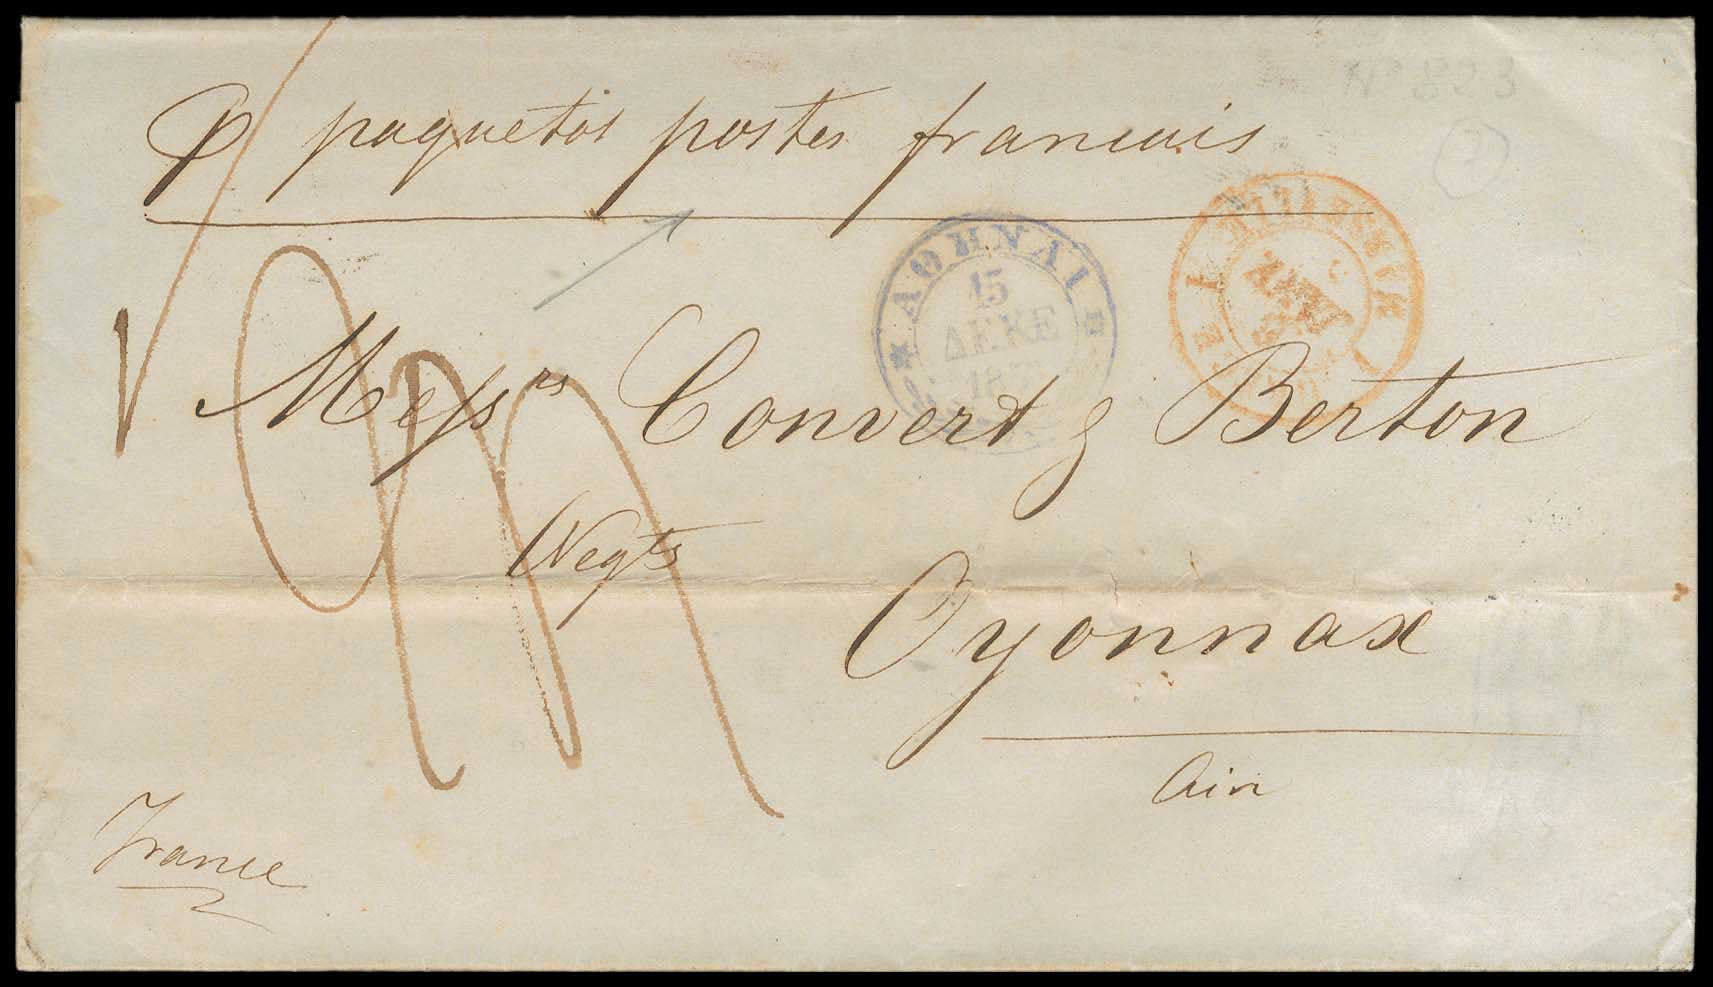 No 823
(2)
p paquetos postes francais
ΑΘΗΝΑΙ
15
ΔΕΚΕ
Messrs Convert & Berton
Negts
Oyonnax
Ain
France